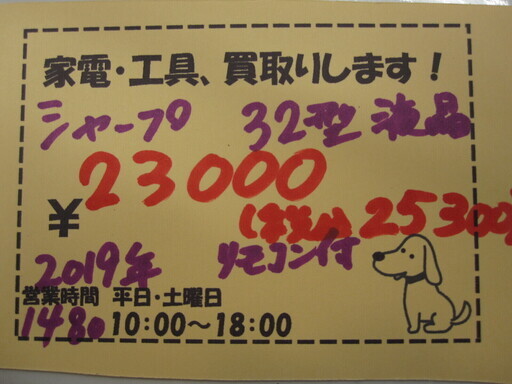 家電・工具、買取りします！
シャープ 32型 液晶
¥23000
(税込) 25300
2019年 リモコン付
営業時間 平日・土曜日
1480 10:00～18:00